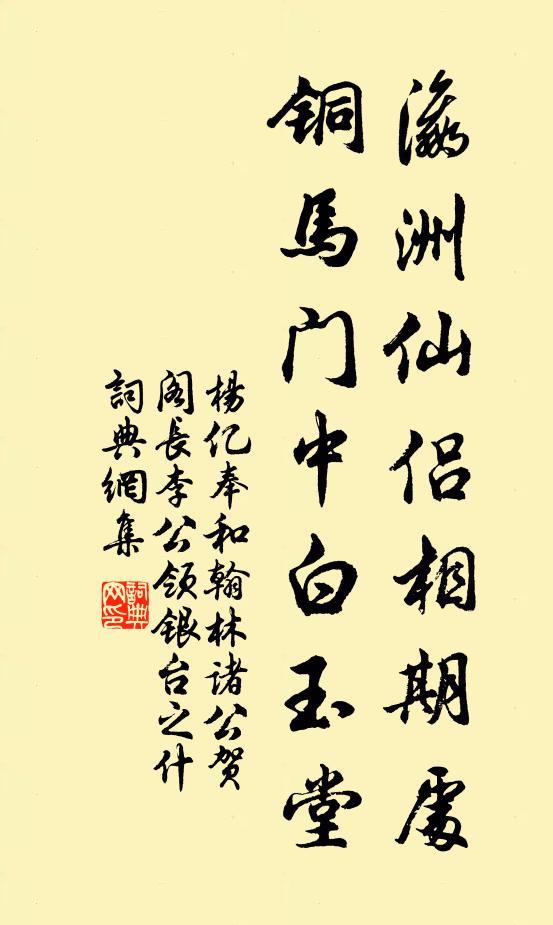 瀛洲仙侣相期處
銅馬门中白玉堂
楊亿奉和翰林諸公賀
阁長李公领银台之什
詞典網集
詞典网印